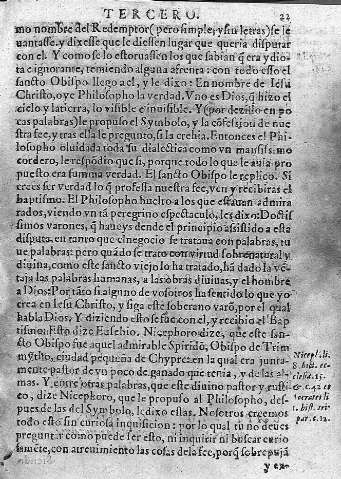 TERCERO. 22
mo nombre del Redemptor (pero simple, y sin letras) se le
uantasse, y dixesse que le diessen lugar que queria disputar
con el. Y como se lo estoruassen los que sabian q̃ era ydio
ta e ignorante, temiendo alguna afrenta: con todo esso el
sancto Obispo llego a el, y le dixo: En nombre de Iesu
Christo, oye Philosopho la verdad. Vno es Dios, q̃ hizo el
cielo y la tierra, lo visible e inuisible. Y (por dezillo en po
cas palabras) le propuso el Symbolo, y la cõfessiõ de nue
stra fee, y tras ella le pregunto, si la crehia. Entonces el Phi
losopho oluidada toda su dialectica como vn mansiss. mo
cordero, le respõdio que si, porque todo lo que le auia pro
puesto era summa verdad. El sancto Obispo le replico. Si
crees ser verdad lo q̃ professa nuestra fee, ven y recibiras el
baptismo. El Philosopho buelto a los que estauan admira
rados, viendo vn tã peregrino espectaculo, les dixo: Doctis
simos varones, q̃ haueys dende el principio assistido a esta
disputa, en tanto que el negocio se trataua con palabras, tu
ue palabras: pero quãdo se trato con virtud sobrenatural y
diuina, como este sancto viejo lo ha tratado, hã dado la vẽ
taja las palabras humanas, a las obras diuinas, y el hombre
a Dios: Por tãto si alguno de vosotros ha sentido lo que yo
crea en Iesu Christo, y siga este soberano varõ, por el qual
habla Dios. Y diziendo esto se fue con el, y recibio el Bap
tismo. Esto dize Eusebio. Nicephoro dize, que este san-
cto Obispo fue aquel admirable Spiridõ, Obispo de Trim
mytho, ciudad pequeña de Chypre, en la qual era junta-
mente pastor de vn poco de ganado que tenia, y de las al-
mas. Y entre otras palabras, que este diuino pastor y rusti
co, dize Nicephoro, que le propuso al Philosopho, des-
pues de las del Symbolo, le dixo estas. Nosotros creemos
todo esto sin curiosa inquisicion: por lo qual tu no deues
preguntar como puede ser esto, ni inquirir ni buscar curio
samẽte, con atreuimiento las cosas de la fee, porq̃ sobrepujã
y ex-
Niceph. li.
8. hist. ec-
clesiast. 15.
& c. 42 et
Socrates li
1. hist. tri-
par. c. 12.